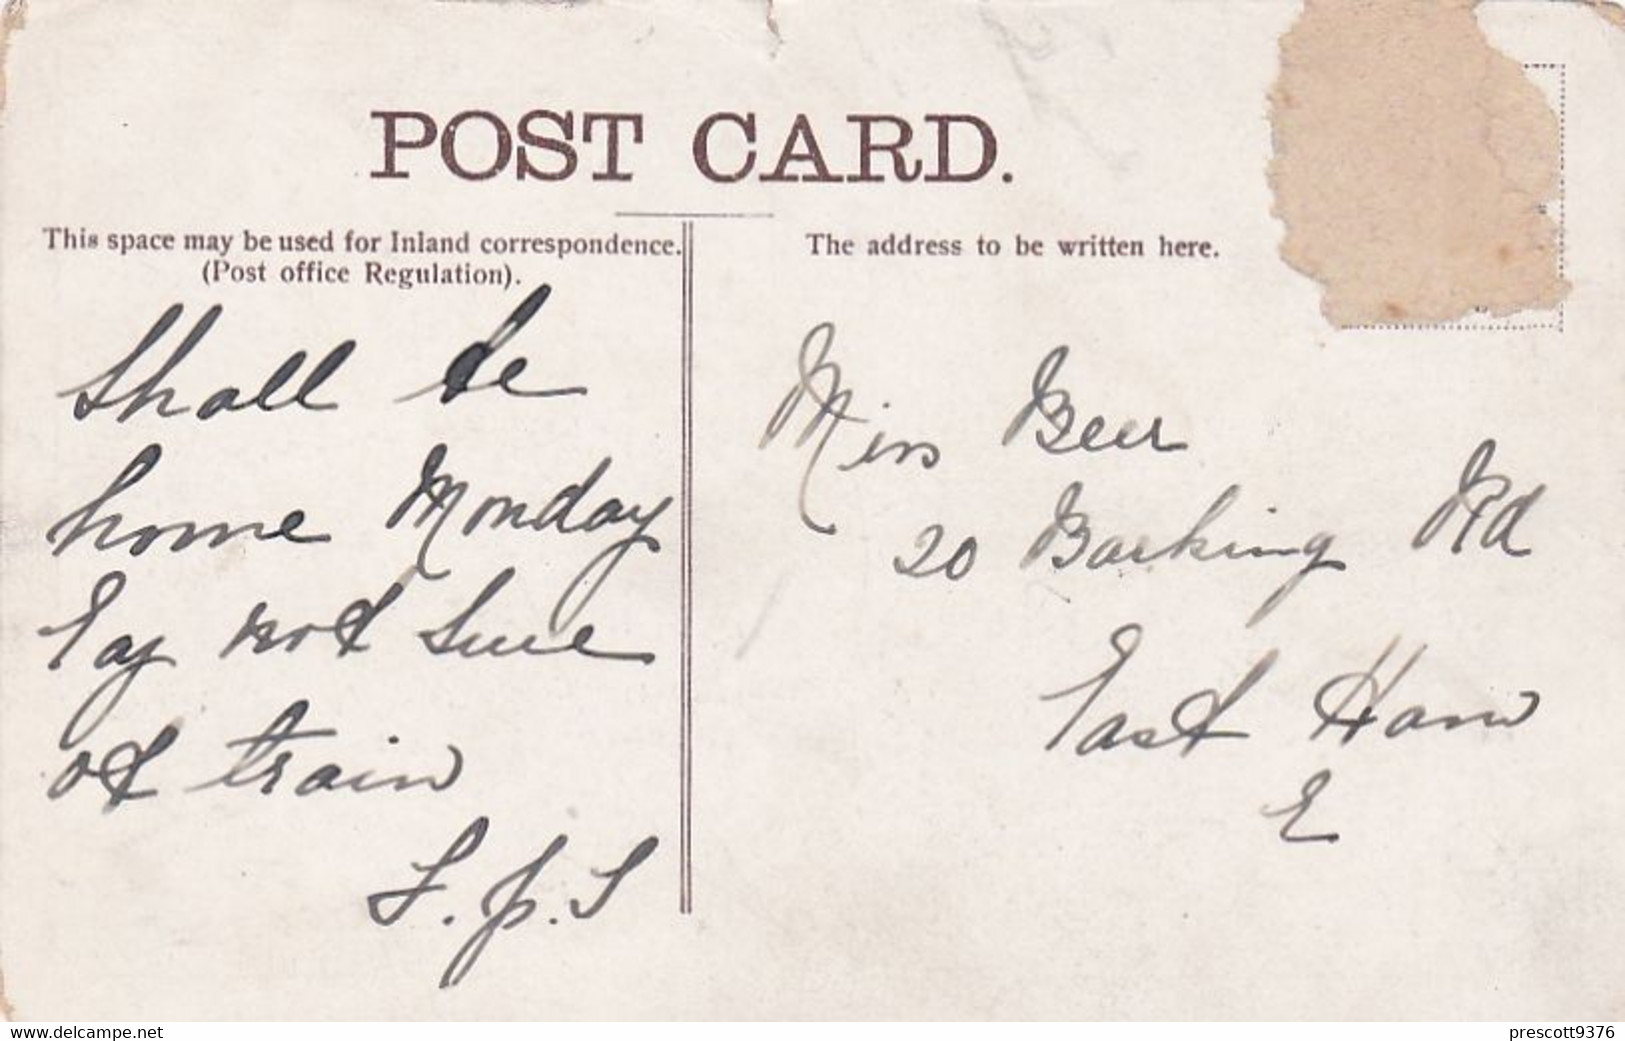 POST CARD.
This space may be used for Inland correspondence.
(Post office Regulation).
The address to be written here.
Shall be
home Monday
not sure
of train
Miss Beer
20 Barking Rd
East Ham
E
www.delcampe.net
prescott9376